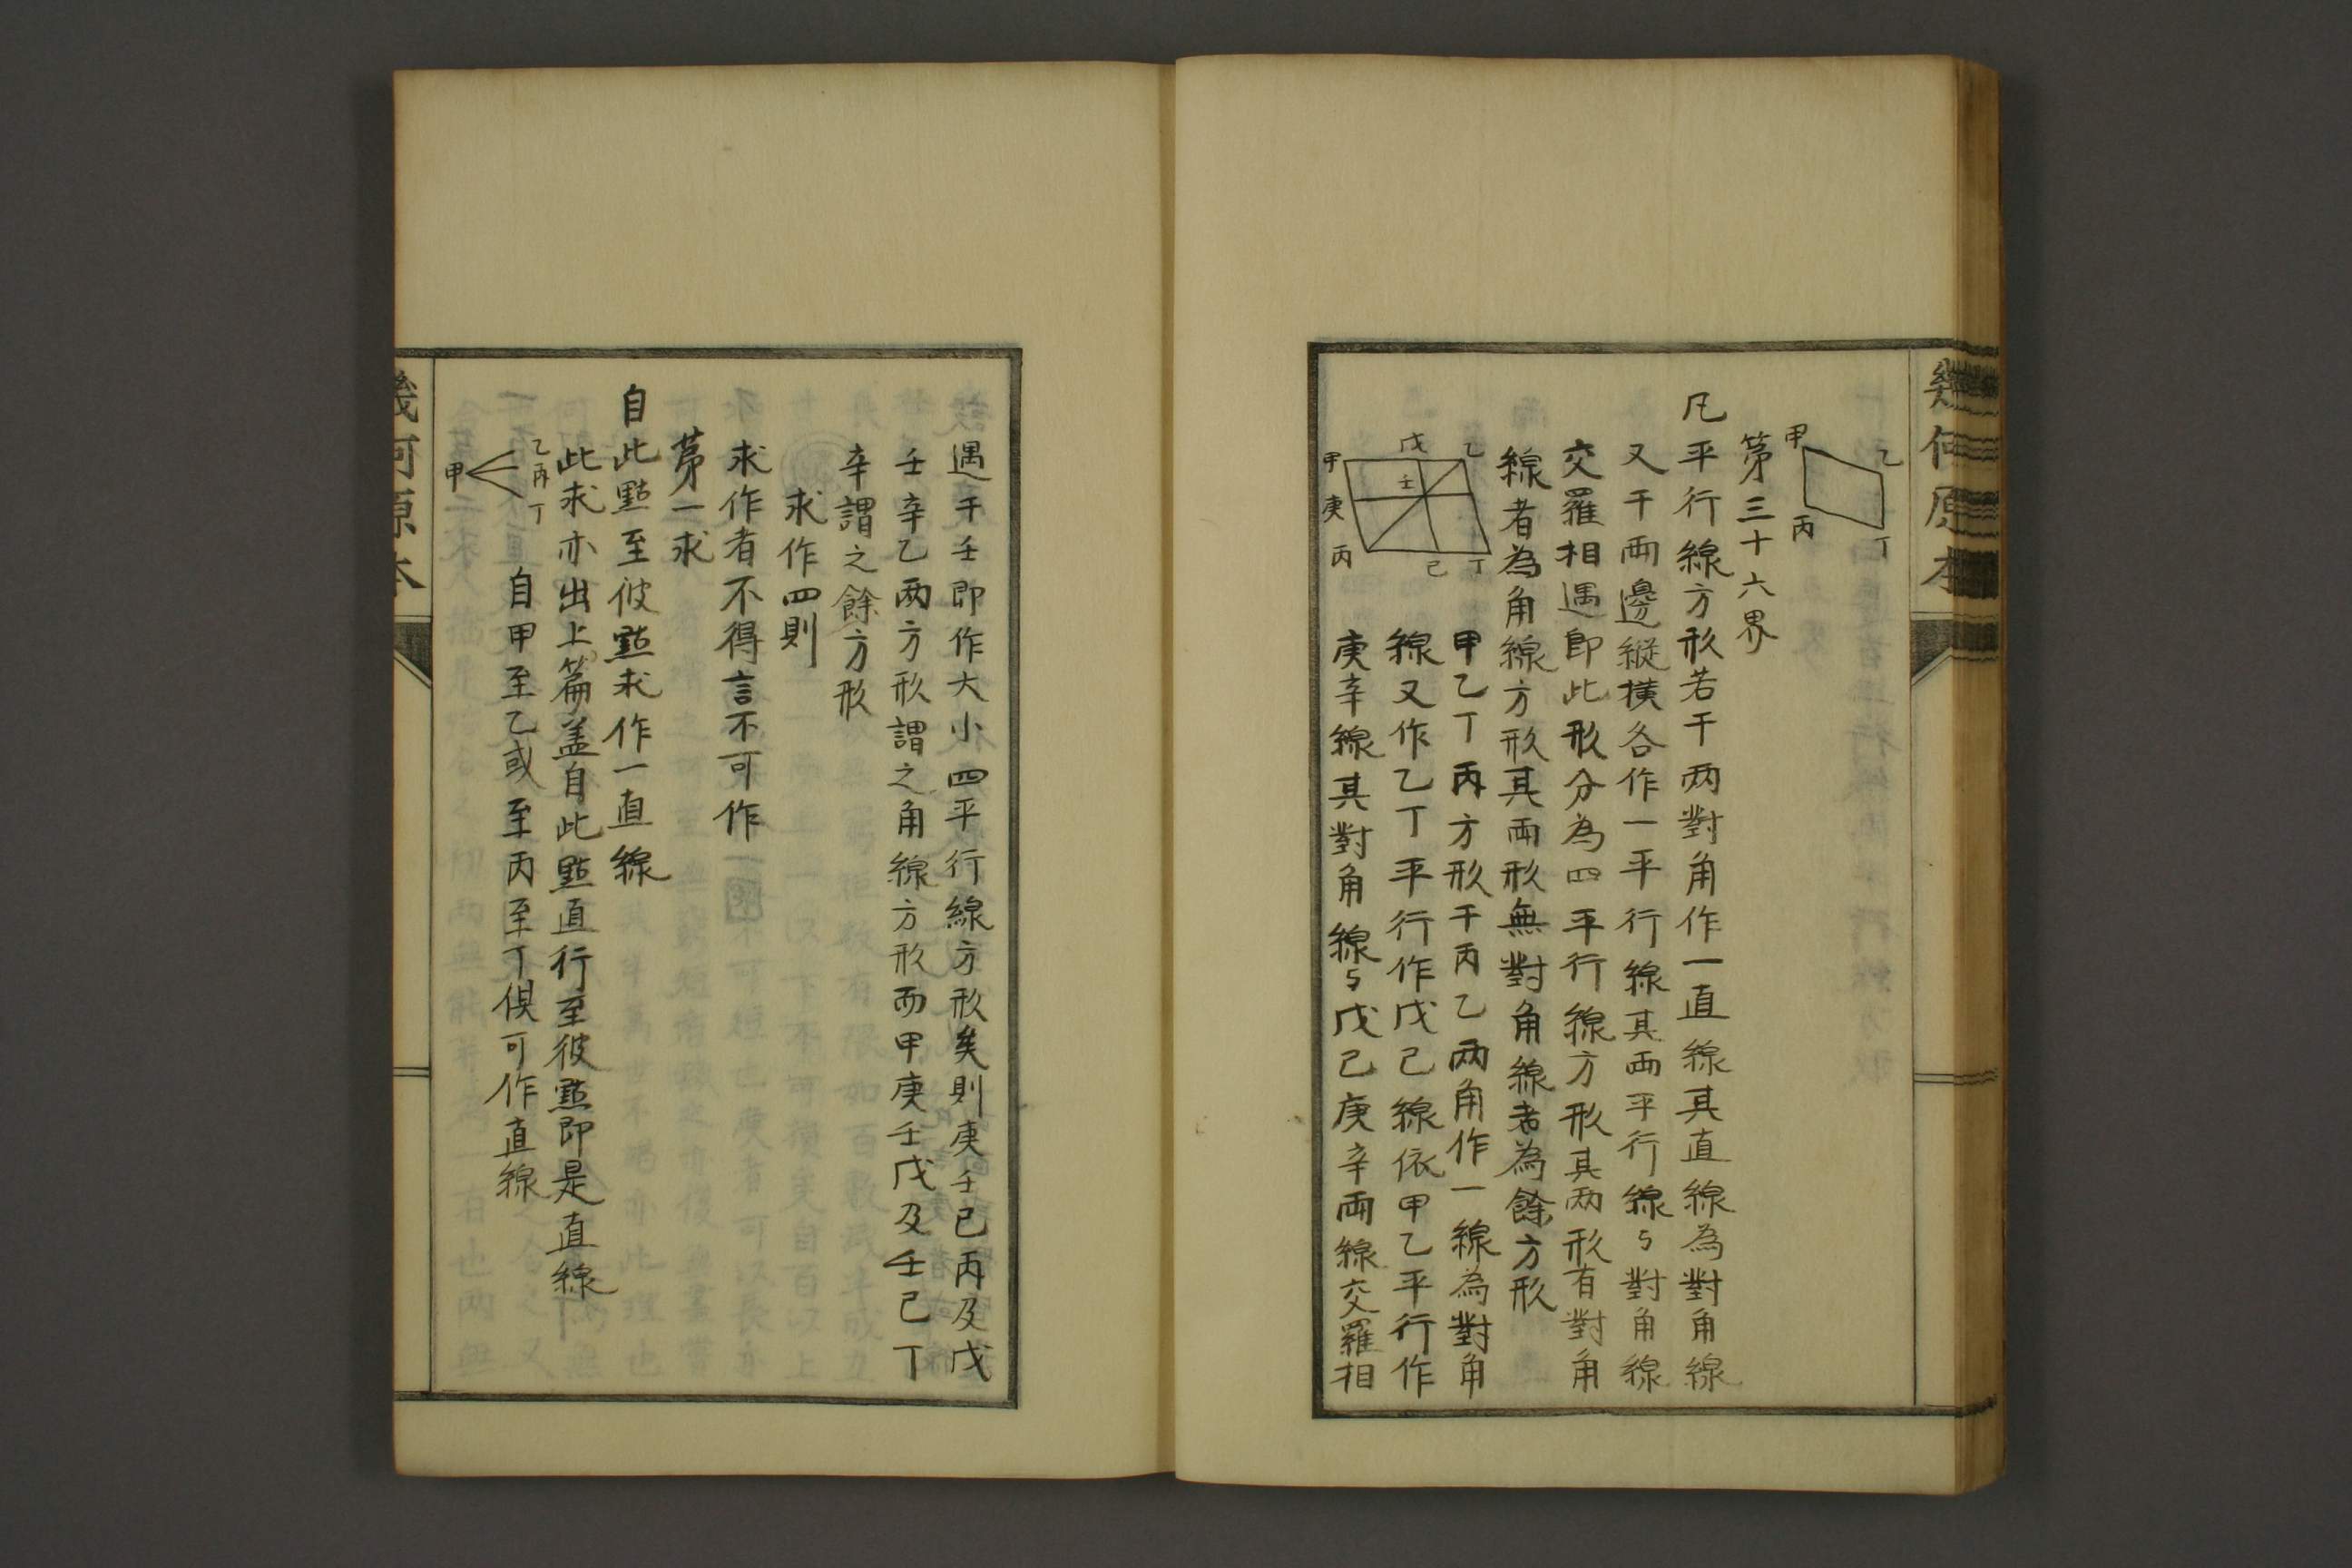 幾何原本
甲
乙
丙
丁
第三十六界
凡平行線方形若干兩對角作一直線其直線為對角線
又干兩邊縱橫各作一平行線其兩平行線与對角線
交羅相遇即此形分為四平行線方形其两形有對角
線者為角線方形其兩形無對角線者為餘方形
甲
戊
乙
庚
壬
丙
己
丁
甲乙丁丙方形干丙乙两角作一線為對角
線又作乙丁平行作戊己線依甲乙平行作
庚辛線其對角線与戊己庚辛兩線交羅相
遇干壬即作大小四平行線方形矣則庚壬己丙及戊
壬辛乙两方形謂之角線方形而甲庚壬戊及壬己丁
辛謂之餘方形
求作四則
求作者不得言不可作
第一求
自此點至彼點求作一直線
此求亦出上篇盖自此點直行至彼點即是直線
乙
丙
丁
甲
自甲至乙或至丙至丁俱可作直線
幾何原本